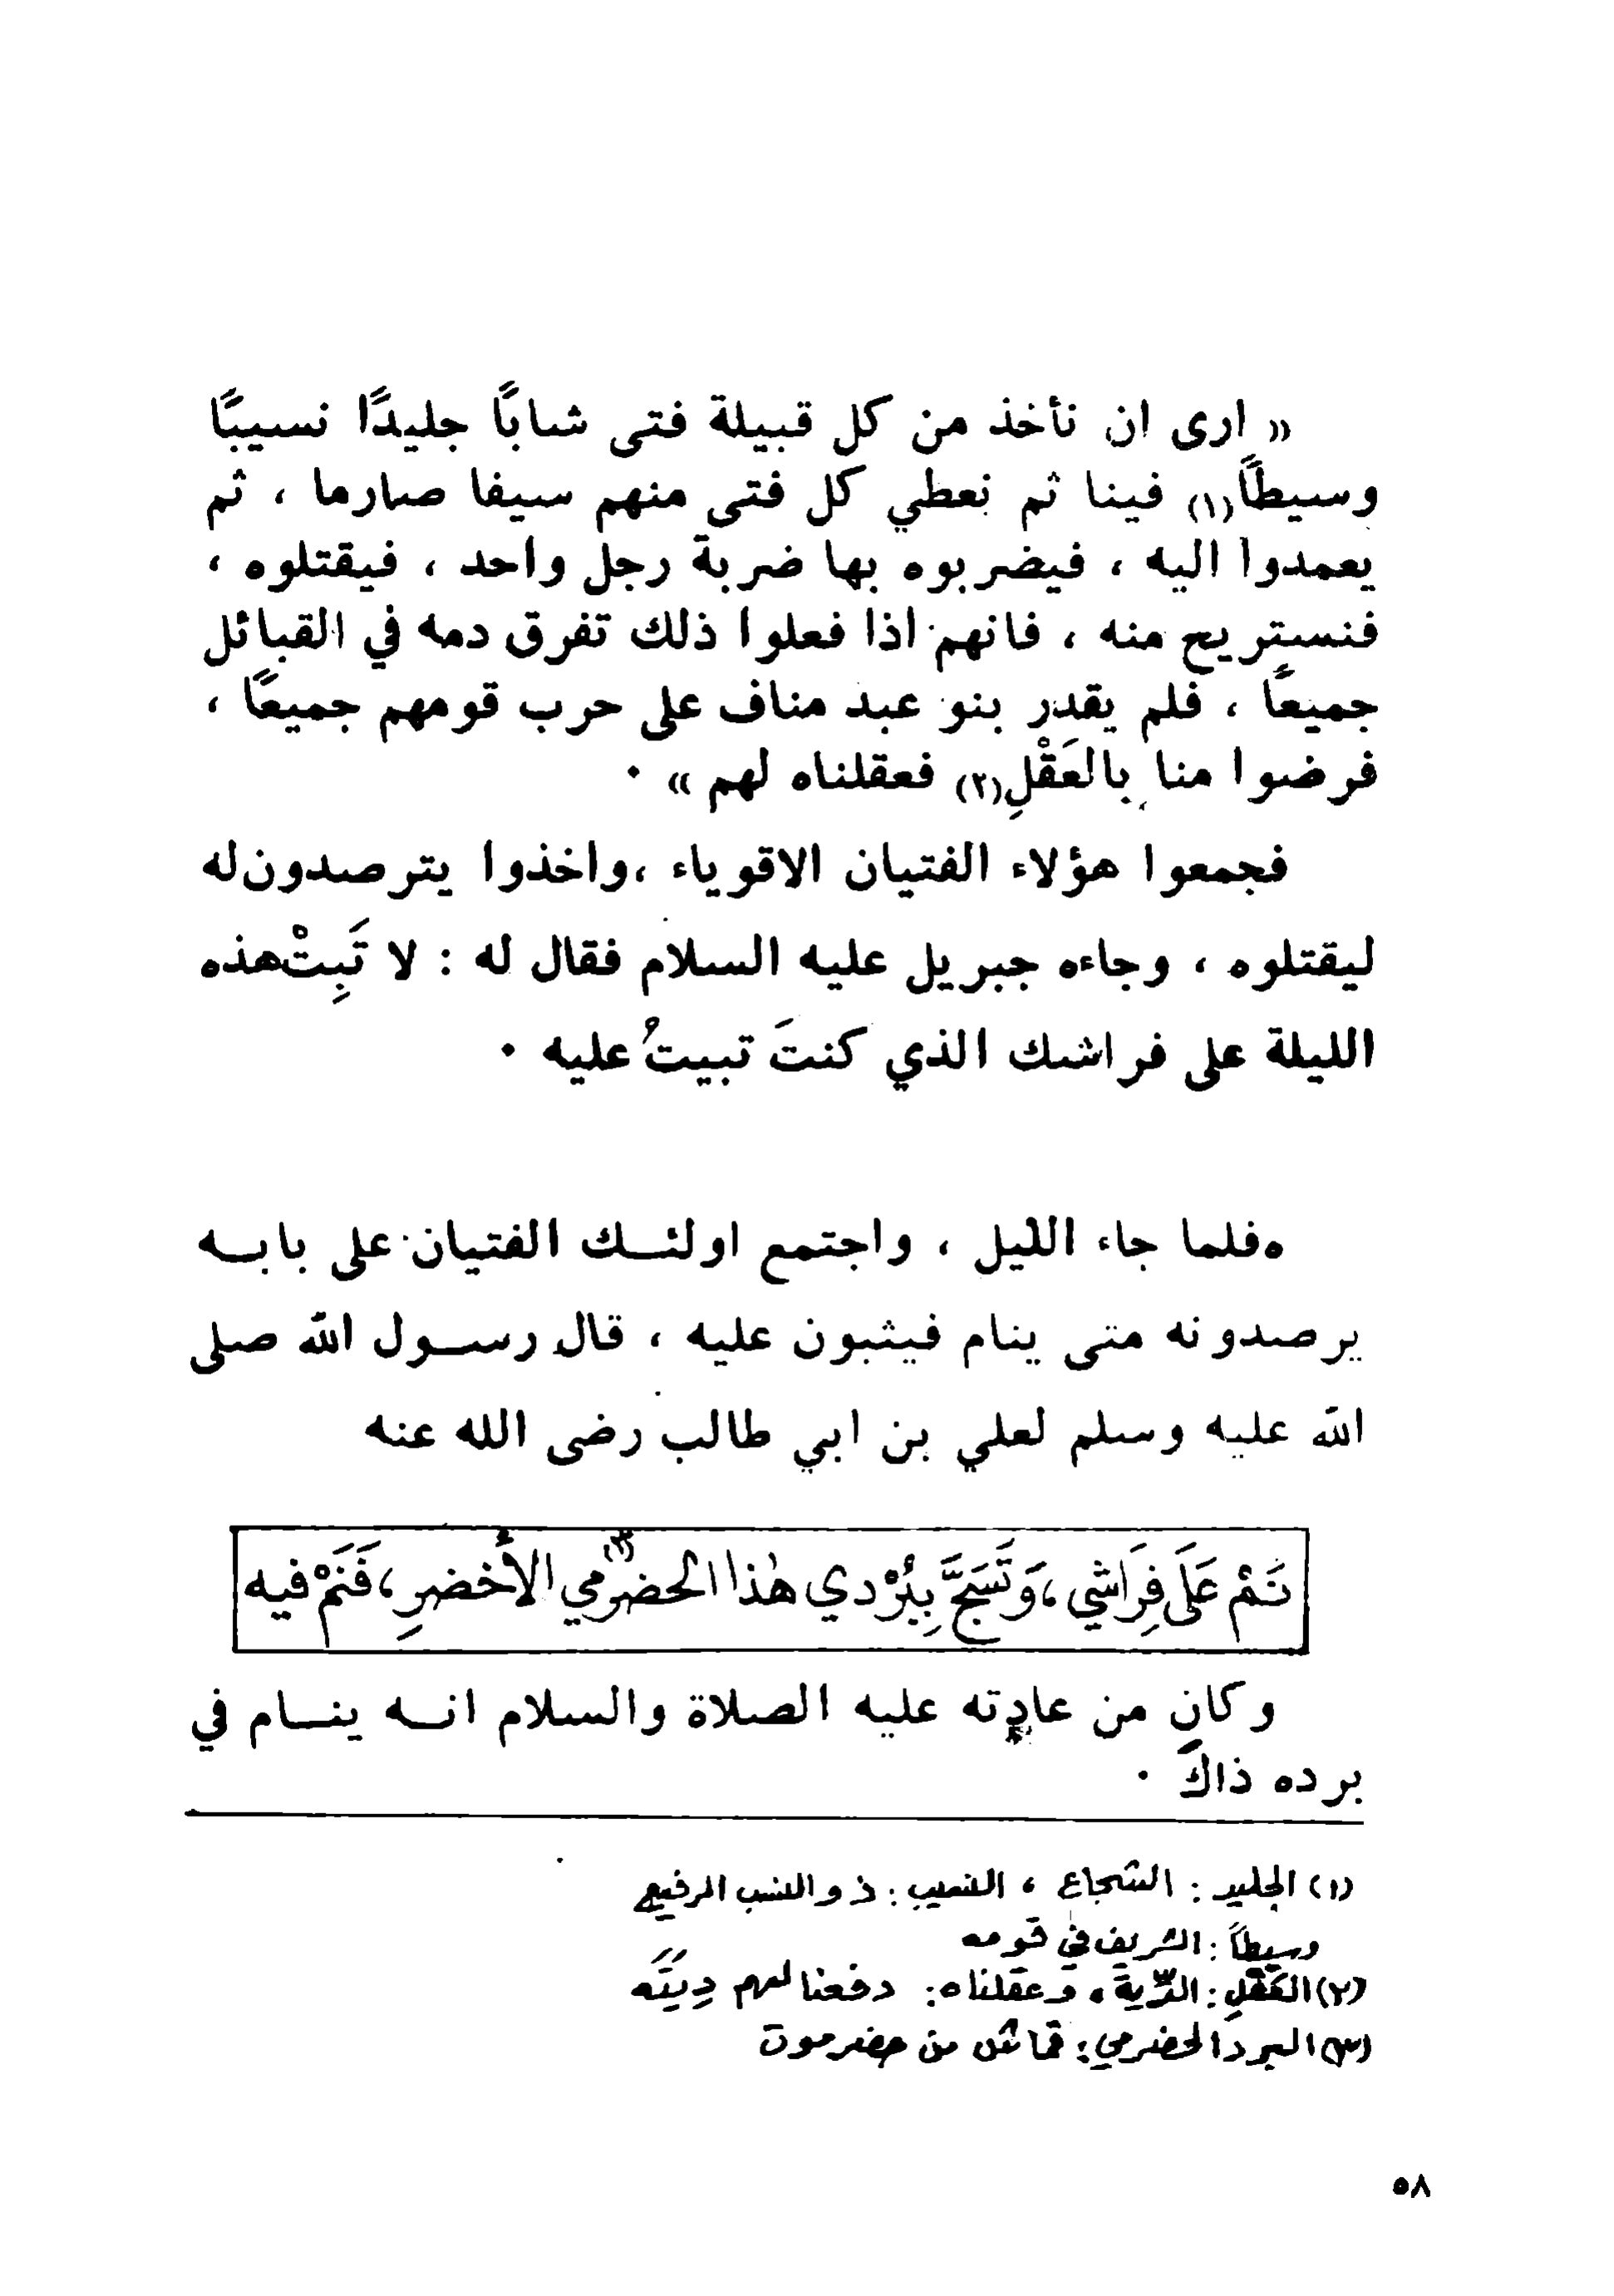 « ارى ان نأخذ من كل قبيلة فتى شابًا جليدًا نسيبًا
وسيطًا(١) فينا ثم نعطي كل فتى منهم سيفا صارما ، ثم
يعمدوا اليه ، فيضربوه بها ضربة رجل واحد ، فيقتلوه ،
فنستريح منه ، فانهم اذا فعلوا ذلك تفرق دمه في القبائل
جميعًا ، فلم يقدر بنو عبد مناف على حرب قومهم جميعًا ،
فرضوا منا بالعَقْلِ(٢) فعقلناه لهم » ٠
فجمعوا هؤلاء الفتيان الاقوياء ،واخذوا يترصدون له
ليقتلوه ، وجاءه جبريل عليه السلام فقال له : لا تَبِتْ هذه
الليلة على فراشك الذي كنتَ تبيتُ عليه ٠
ه فلما جاء الليل ، واجتمع اولئــك الفتيان على بابــه
يرصدونه متى ينام فيثبون عليه ، قال رســول الله صلى
الله عليه وسلم لعلي بن ابي طالب رضى الله عنه
نَمْ عَلَى فِرَاشي ، وَتَسَجَّ بِبُرْدي هٰذا الحضرمي(٣) الأخضرِ ، فَنَمْ فيه
وكان من عادته عليه الصلاة والسلام انــه ينــام في
برده ذاك ٠
(١) الجليد : الشجاع ، النسيب : ذو النسب الرفيع
وسيطاً : الشريف في قومه
(٢) العَقْلِ : الدِّية ، وعقلناه : دفعنا لهم دِيَتَه
(٣) البرد الحضرمي : قماش من حضرموت
٥٨